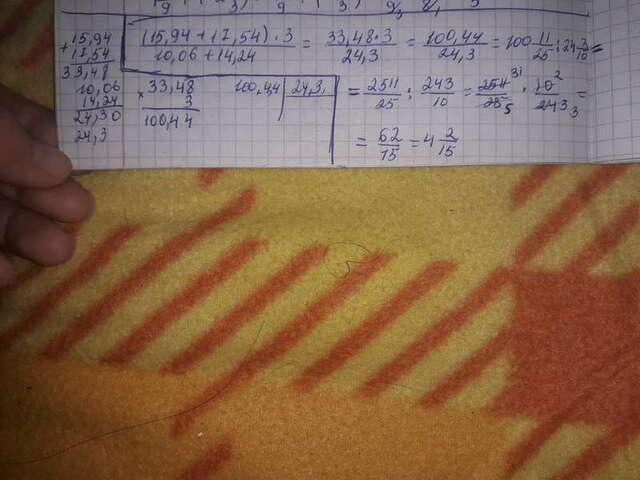 + 15,94
17,54
33,48
10,06
14,24
24,30
24,3
(15,94 + 17,54) · 3 / 10,06 + 14,24 = 33,48·3 / 24,3 = 100,44 / 24,3 = 100 11/25 : 24 3/10 =
× 33,48
3
100,44
100,44 | 24,3
= 2511/25 : 243/10 = 2511 31/25 5 · 10 2/243 3 =
= 62/15 = 4 2/15